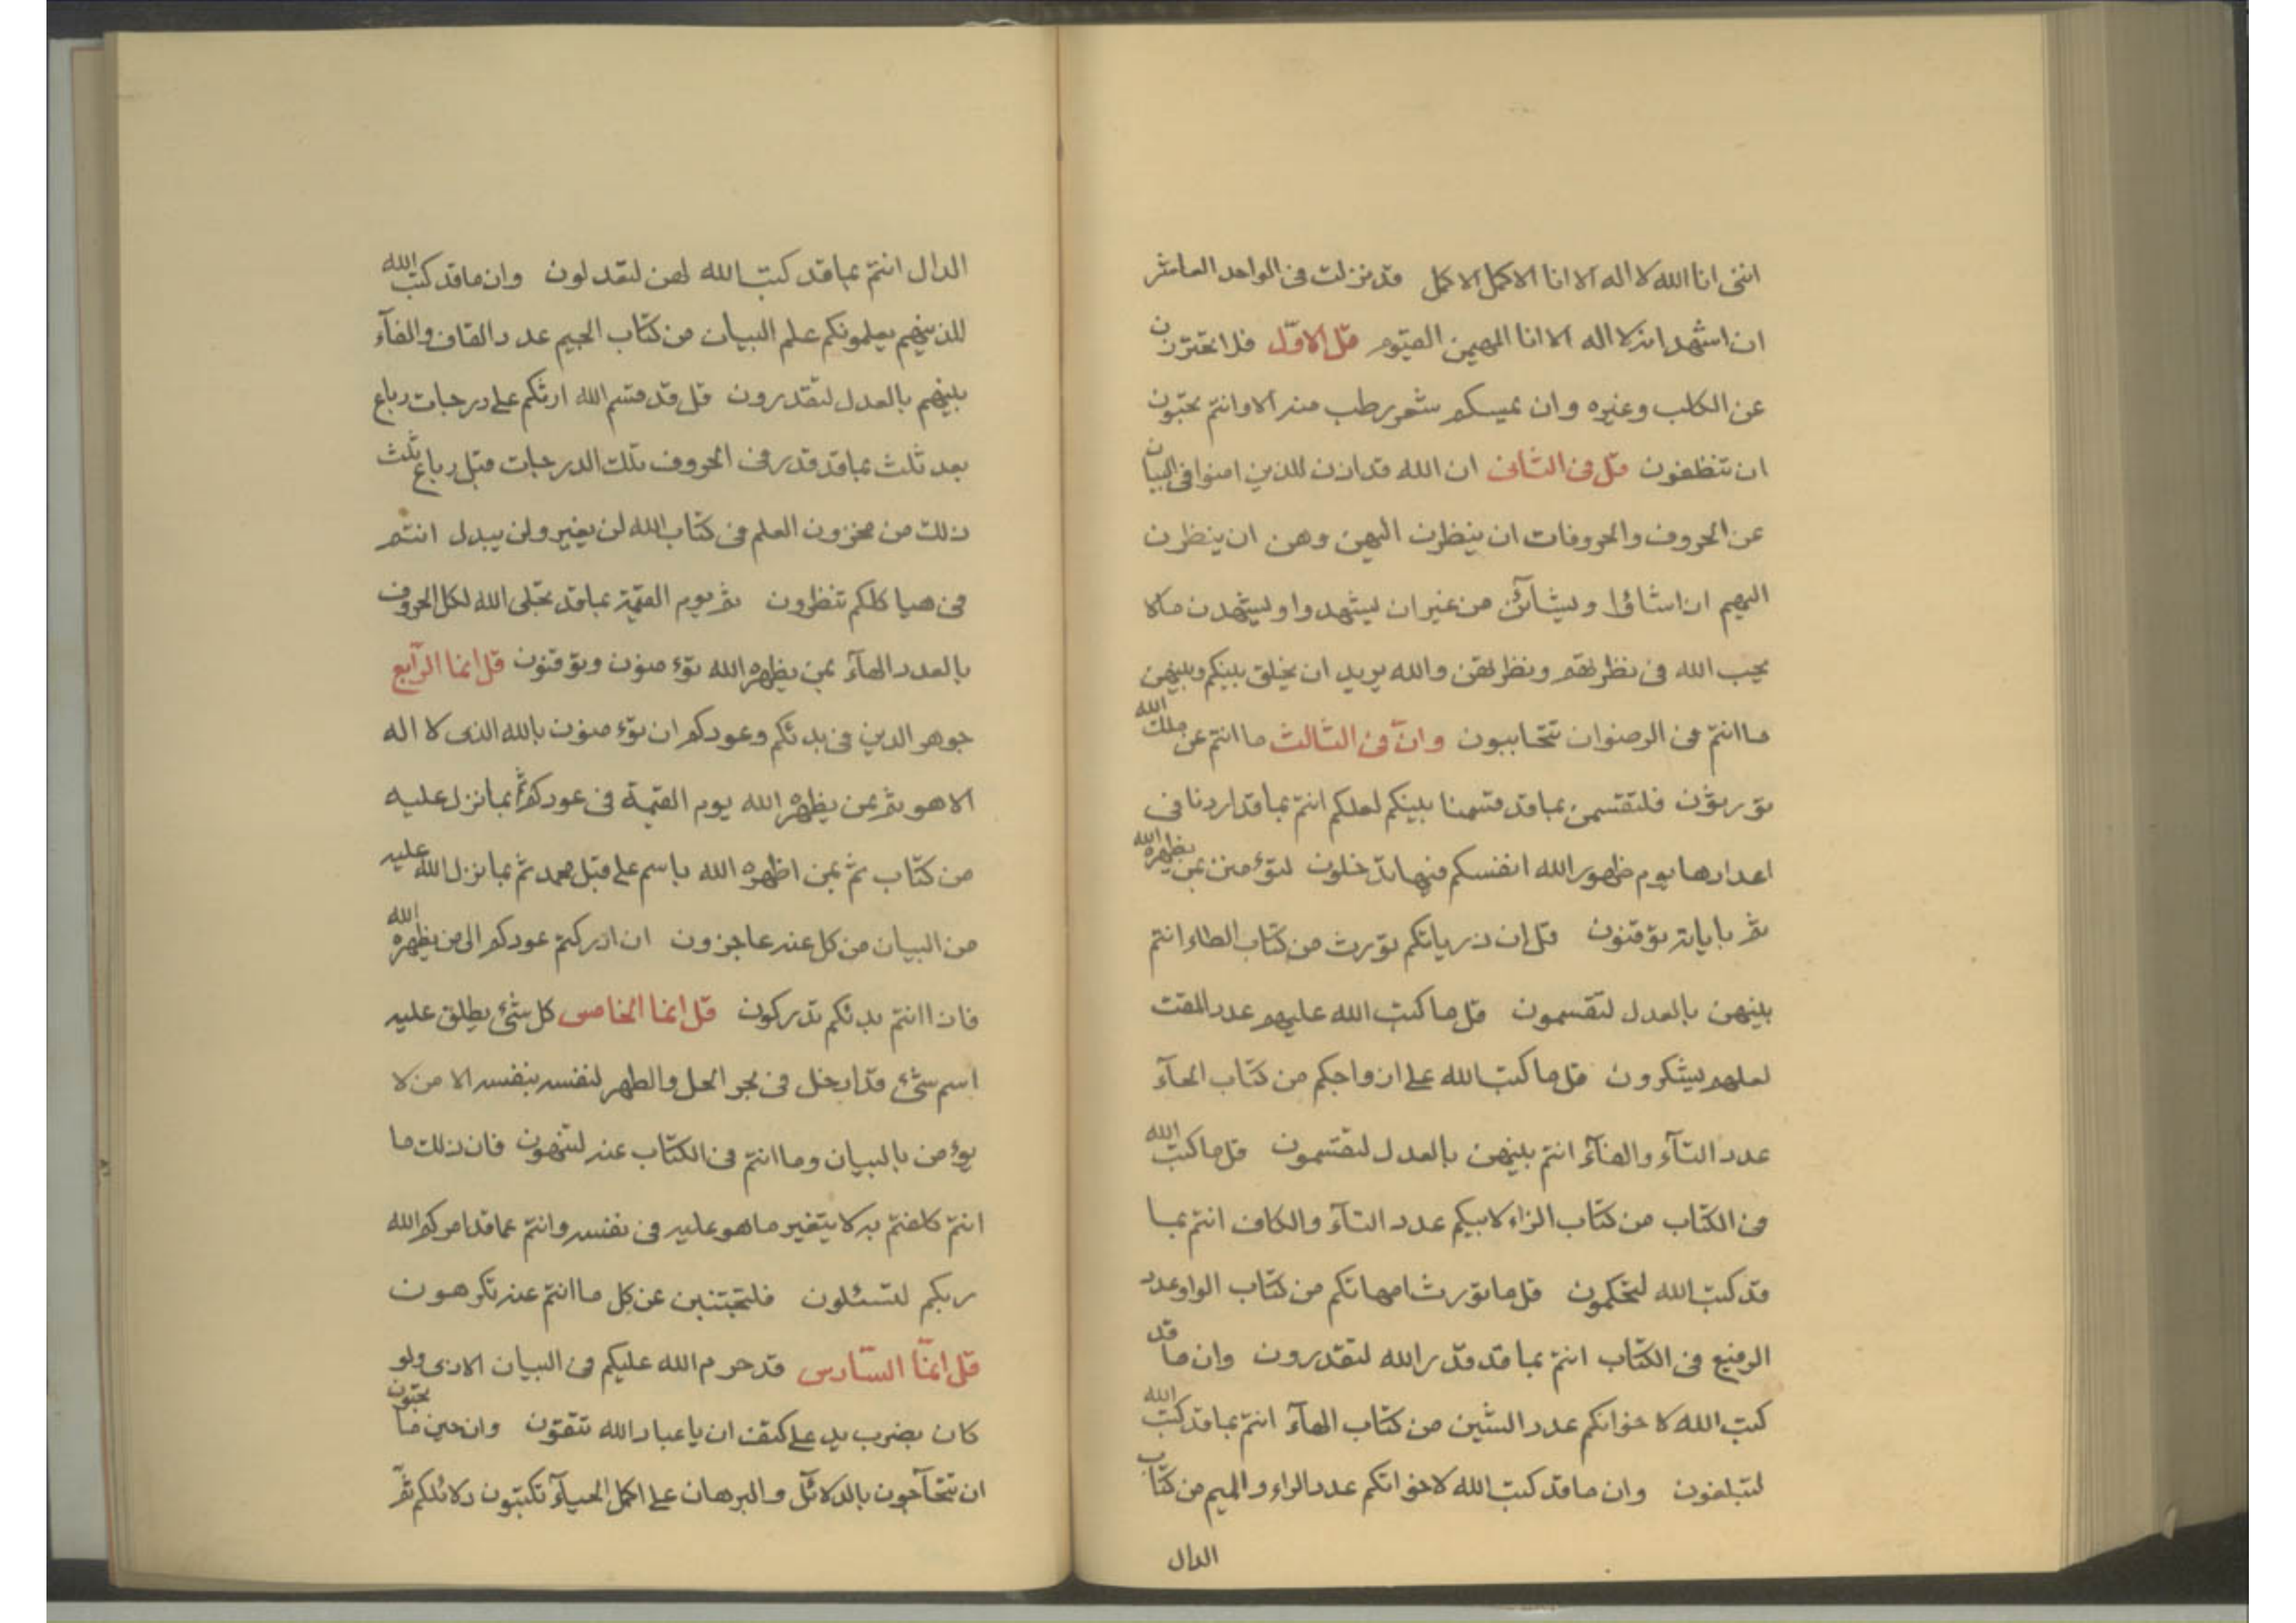 اننى انا الله لا اله الا انا الاكمل الاكمل قد نزلت فى الواحد العاشر
ان اشهد انه لا اله الا انا المهيمن القيوم قل الاوّل فلا تحترزن
عن الكلب وغيره وان يمسكم شعر رطب منه الا وانتم تحبّون
ان تنظفون قل فى الثانى ان الله قد اذن للذين امنوا فى البيان
عن الحروف والحروفات ان ينظرن اليهن وهن ان ينظرن
اليهم ان اشاؤا ويشآئن من غير ان يشهدوا ويشهدن ما لا
يحب الله فى نظرتهم ونظرتهن والله يريد ان يخلق بينكم وبينهن
ما انتم فى الرضوان تتحاببون وانّ فى الثالث ما انتم عن ملك الله
تورثون فلتقسمن بما قد قسمنا بينكم لعلكم انتم بما قد اردنا فى
اعدادها يوم ظهور الله انفسكم فيها تدخلون لتؤمنن بمن يظهره الله
ثم باياته توقنون قل ان ذرياتكم تورث من كتاب الطاء انتم
بينهن بالعدل لتقسمون قل ما كتب الله عليهم عدد المقت
لعلهم يشكرون قل ما كتب الله على ازواجكم من كتاب الحآء
عدد التآء والفآء انتم بينهن بالعدل لتقسمون قل ما كتب الله
فى الكتاب من كتاب الزاء لابيكم عدد التآء والكاف انتم بما
قد كتب الله لتحكمون قل ما تورث امهاتكم من كتاب الواو عدد
الرفيع فى الكتاب انتم بما قد قدّر الله لتقدرون وان ما قد
كتب الله لاخوانكم عدد الشين من كتاب الهآء انتم بما قد كتب الله
لتبلغون وان ما قد كتب الله لاخواتكم عدد الراء والميم من كتاب
الدال
الدال انتم بما قد كتب الله لهن لتعدلون وان ما قد كتب الله
للذينهم يعلمونكم علم البيان من كتاب الجيم عدد القاف والفآء
بينهم بالعدل لتقدرون قل قد قسم الله ارثكم على درجات رباع
بعد ثلث بما قد قدر فى الحروف تلك الدرجات قبل رباع ثلث
ذلك من مخزون العلم فى كتاب الله لن يغير ولن يبدل انتم
فى هياكلكم تنظرون ثم يوم القيمة بما قد تجلى الله لكل الحروف
بالعدد الهآء بمن يظهره الله تؤمنون وتوقنون قل انما الرّابع
جوهر الدين فى بدئكم وعودكم ان تؤمنون بالله الذى لا اله
الا هو ثم بمن يظهره الله يوم القيمة فى عودكم ثم بما نزل عليه
من كتاب ثم بمن اظهره الله باسم على قبل محمد ثم بما نزل الله عليه
من البيان من كل عنه عاجزون ان ادركتم عودكم الى من يظهره الله
فاذا انتم بدئكم تدركون قل انما الخامس كل شئ يطلق عليه
اسم شئ قد ادخل فى بحر الحل والطهر لنفسه بنفسه الا من لا
يؤمن بالبيان وما انتم فى الكتاب عنه لتنهون فان ذلك ما
انتم كلفتم به لا يتغير ما هو عليه فى نفسه وانتم عما قد امركم الله
ربكم لتسئلون فلتجتنبن عن كل ما انتم عنه تكرهون
قل انمّا السّادس قد حرم الله عليكم فى البيان الاذى ولو
كان بضرب يد على كتف ان يا عباد الله تتقون وان حين ما تحبّون
ان تتحآجون بالدلائل والبرهان على اكمل الحيآء تكتبون دلائلكم ثم